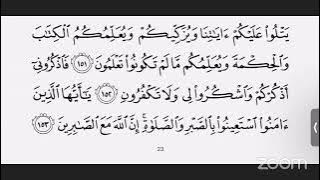 يَتْلُوا۟ عَلَيْكُمْ ءَايَٰتِنَا وَيُزَكِّيكُمْ وَيُعَلِّمُكُمُ ٱلْكِتَٰبَ
وَٱلْحِكْمَةَ وَيُعَلِّمُكُم مَّا لَمْ تَكُونُوا۟ تَعْلَمُونَ ١٥١ فَٱذْكُرُونِىٓ
أَذْكُرْكُمْ وَٱشْكُرُوا۟ لِى وَلَا تَكْفُرُونِ ١٥٢ يَٰٓأَيُّهَا ٱلَّذِينَ
ءَامَنُوا۟ ٱسْتَعِينُوا۟ بِٱلصَّبْرِ وَٱلصَّلَوٰةِ ۚ إِنَّ ٱللَّهَ مَعَ ٱلصَّٰبِرِينَ ١٥٣
23
zoom